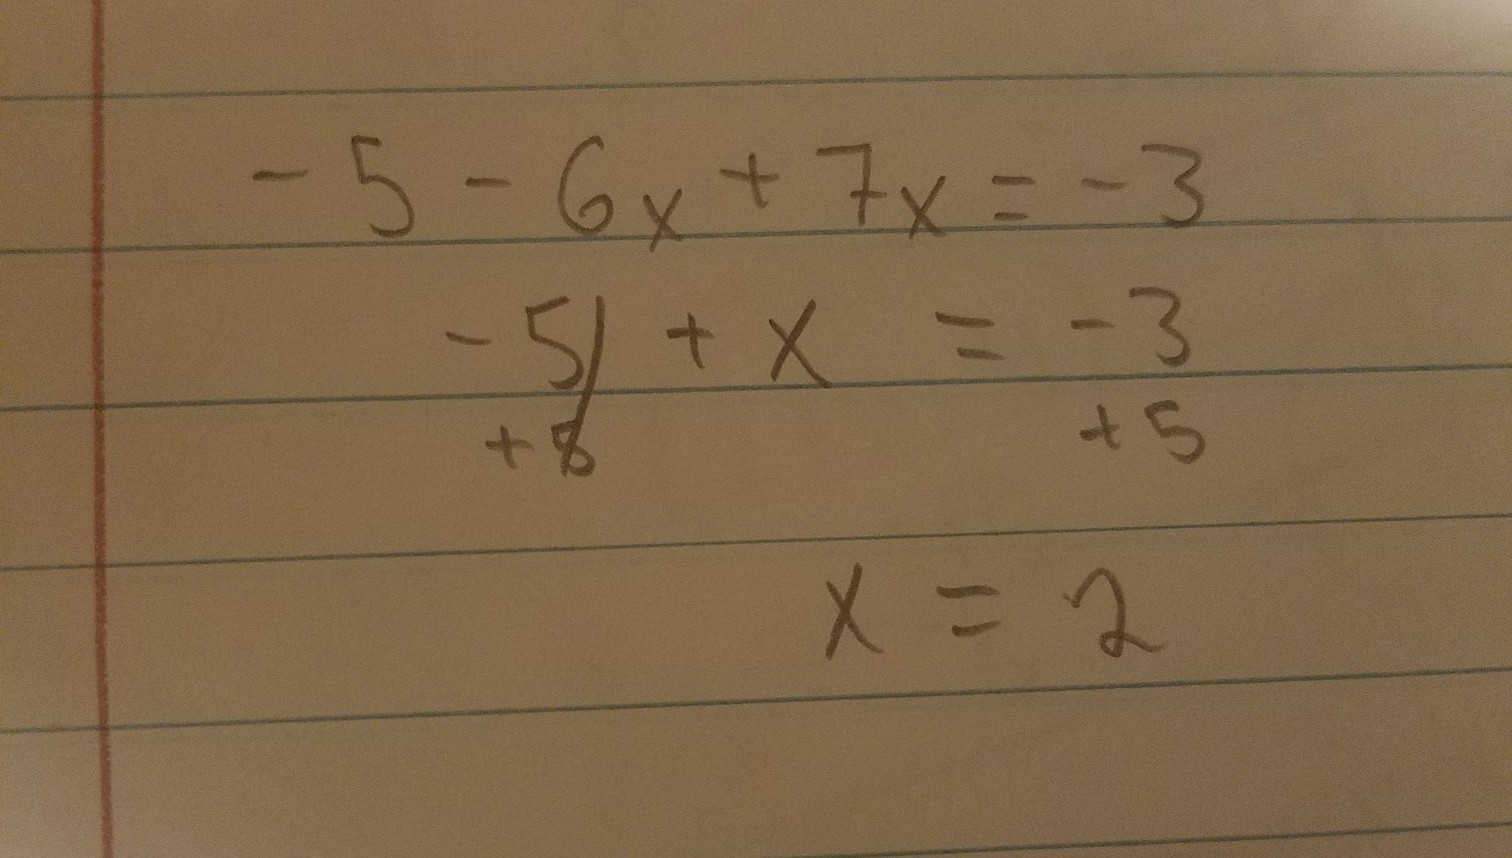 -5 - 6x + 7x = -3
-5 + x = -3
+5 +5
x = 2